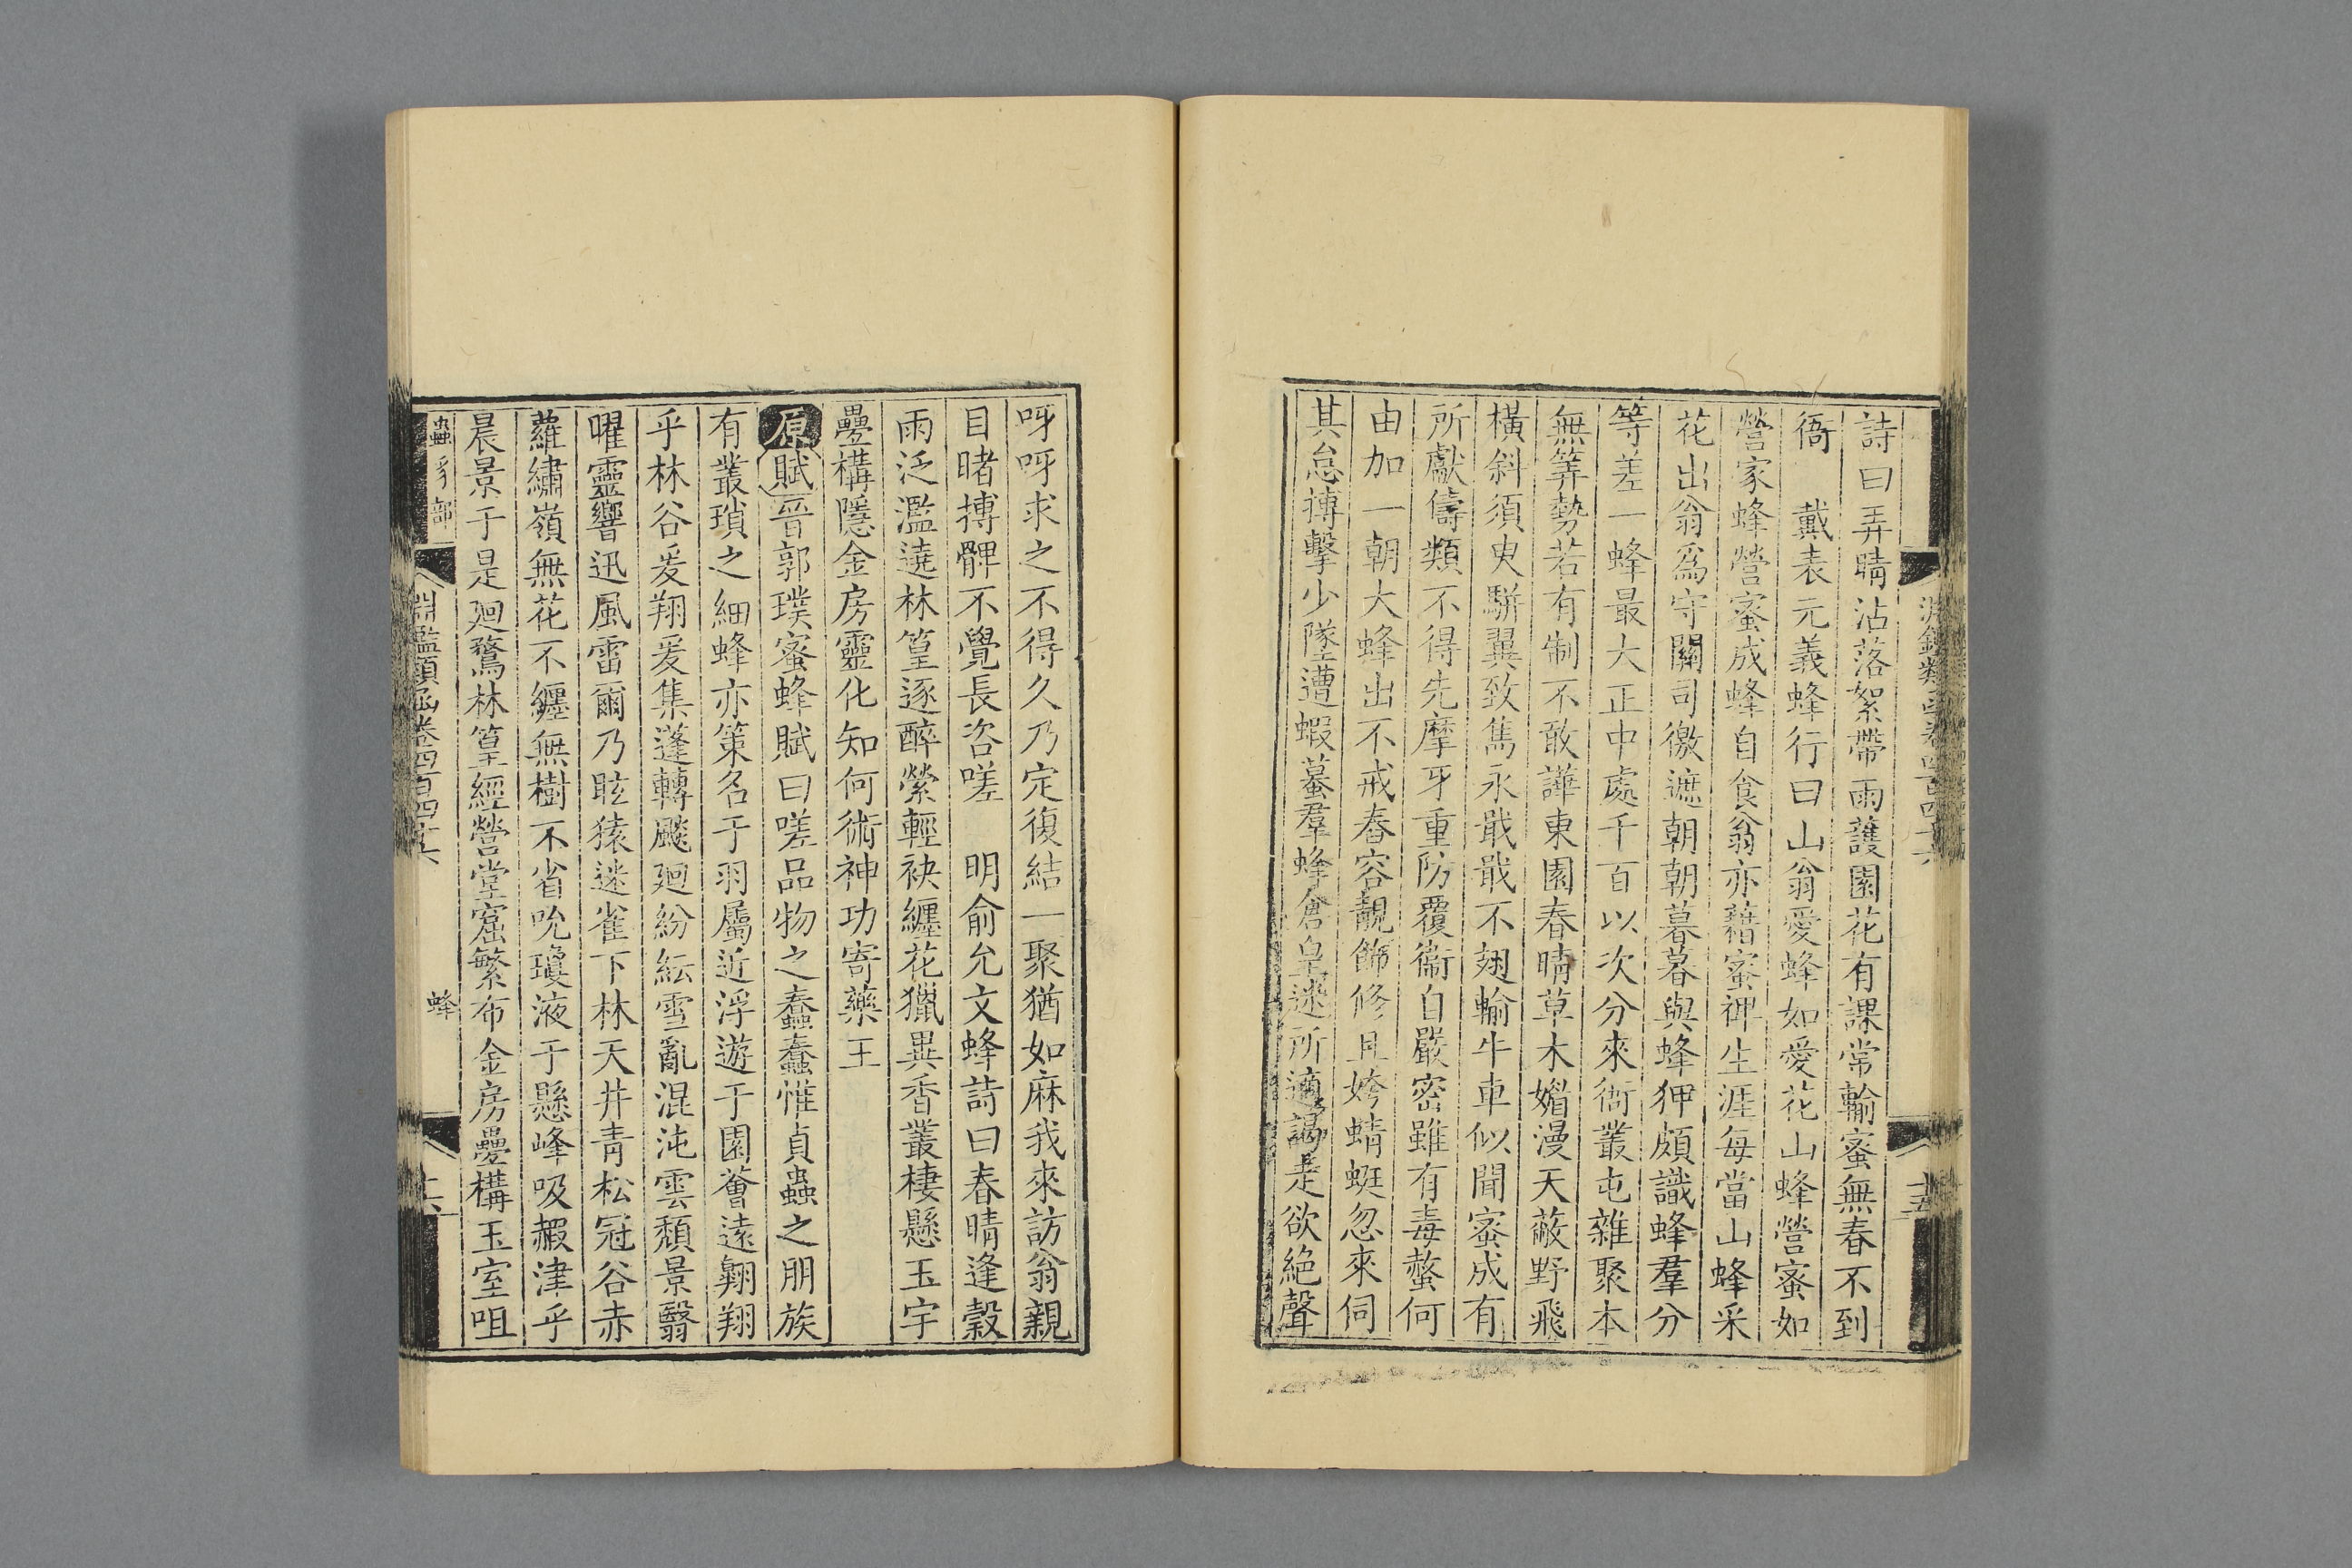 詩曰弄晴沾落絮帶雨護園花有課常輸蜜無春不到
衙　戴表元義蜂行曰山翁愛蜂如愛花山蜂營蜜如
營家蜂營蜜成蜂自食翁亦藉蜜裨生涯每當山蜂采
花出翁爲守關司徼遮朝朝暮暮與蜂狎頗識蜂羣分
等差一蜂最大正中處千百以次分來衙叢屯雜聚本
無筭勢若有制不敢譁東園春晴草木媚漫天蔽野飛
橫斜須臾駢翼致雋永戢戢不翅輸牛車似聞蜜成有
所獻儔類不得先摩牙重防覆衞自嚴密雖有毒螫何
由加一朝大蜂出不戒春容靚飾修且姱蜻蜓忽來伺
其怠搏擊少墜遭蝦蟇羣蜂倉皇迷所適謁走欲絕聲
呀呀求之不得久乃定復結一聚猶如麻我來訪翁親
目睹搏髀不覺長咨嗟　明俞允文蜂詩曰春晴逢穀
雨泛濫遶林篁逐醉縈輕袂纏花獵異香叢棲懸玉宇
疊構隱金房靈化知何術神功寄藥王
原賦晉郭璞蜜蜂賦曰嗟品物之蠢蠢惟貞蟲之朋族
有叢瑣之細蜂亦策名于羽屬近浮遊于園薈遠翱翔
乎林谷爰翔爰集蓬轉飈廻紛紜雪亂混沌雲頹景翳
曜靈響迅風雷爾乃眩猿迷雀下林天井青松冠谷赤
蘿繡嶺無花不纏無樹不省吮瓊液于懸峰吸赮津乎
晨景于是廻鶩林篁經營堂窟繁布金房疊構玉室咀
蟲豸部　淵鑑類函卷四百四十六　蜂　十六